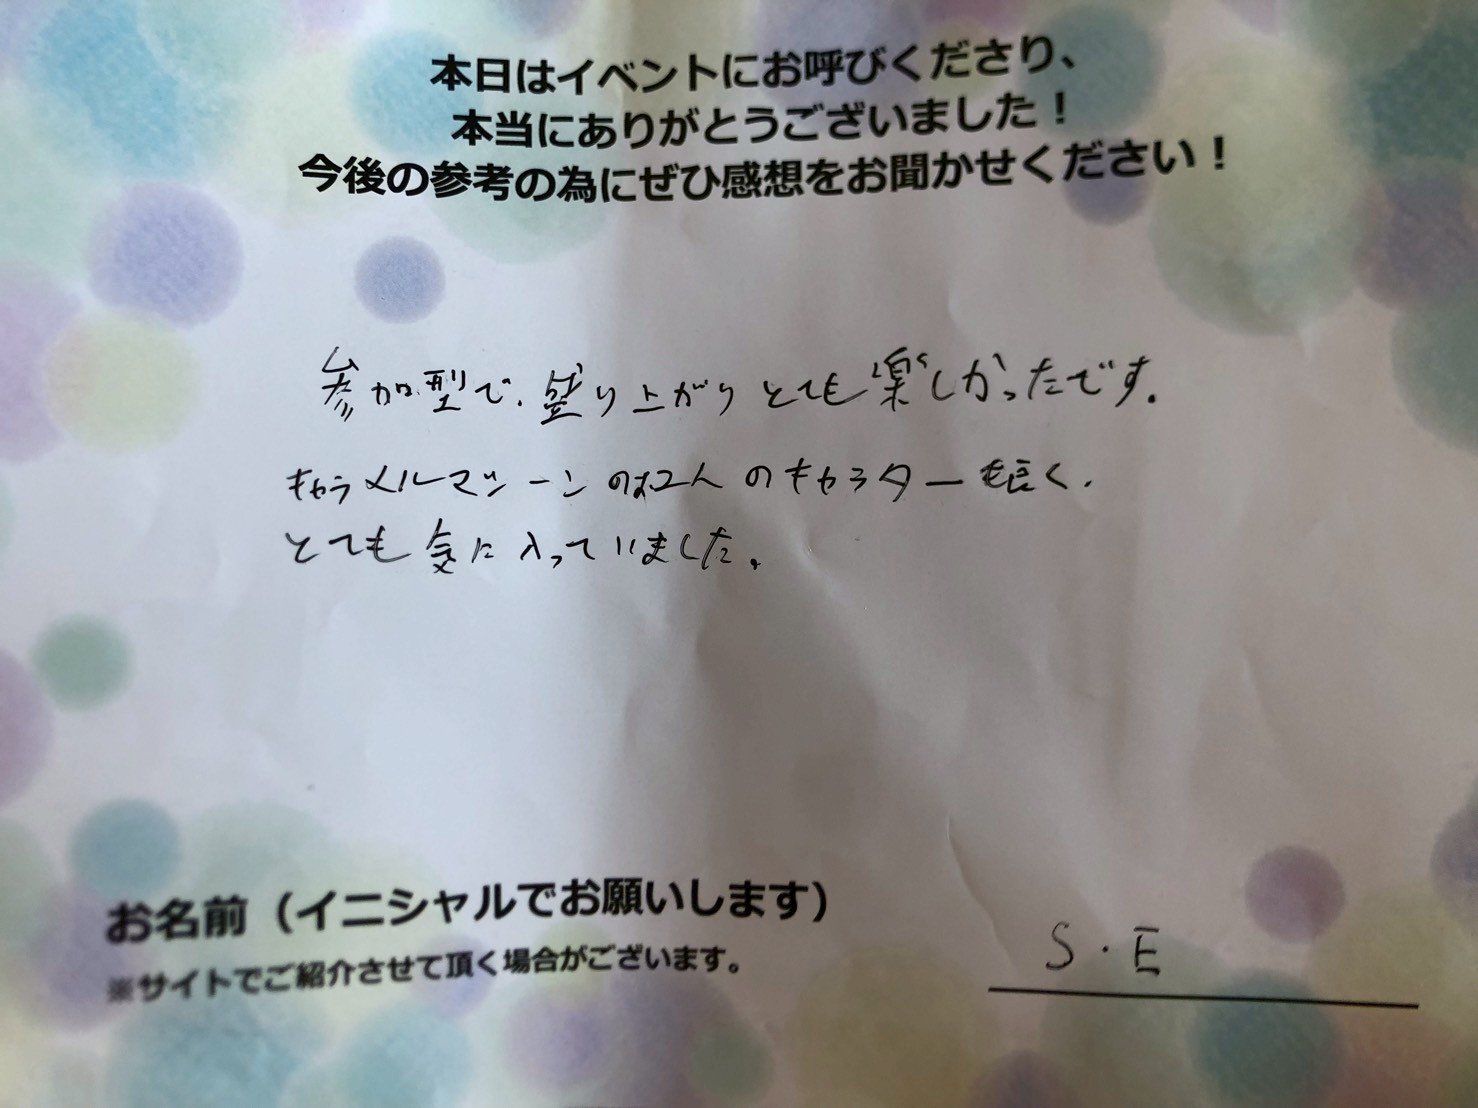 本日はイベントにお呼びくださり、
本当にありがとうございました！
今後の参考の為にぜひ感想をお聞かせください！
参加型で、盛り上がりとても楽しかったです。
キャラメルマシーンのお二人のキャラクターも良く、
とても気に入っていました。
お名前（イニシャルでお願いします）
※サイトでご紹介させて頂く場合がございます。
S・E